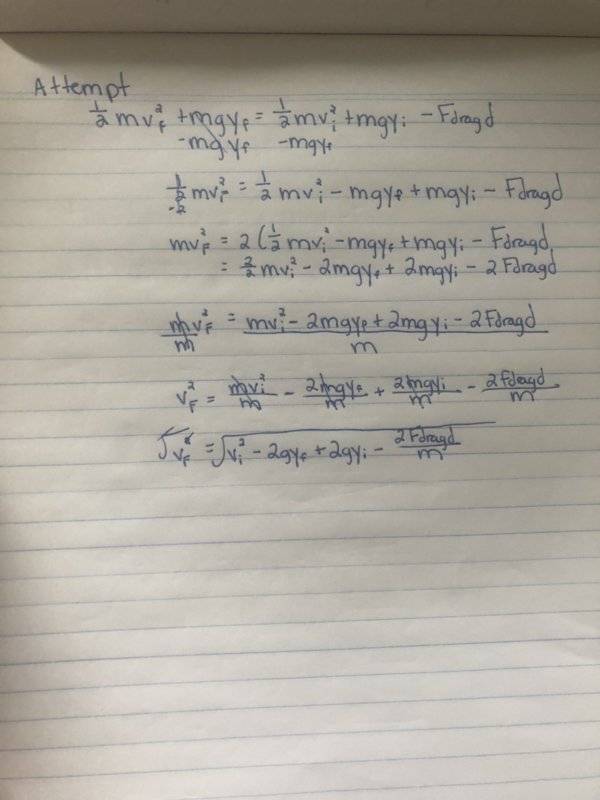 Attempt
½ mv_f² + mgy_f = ½ mv_i² + mgy_i - Fdragd
-mgy_f -mgy_f
½ mv_f² = ½ mv_i² - mgy_f + mgy_i - Fdragd
mv_f² = 2 (½ mv_i² - mgy_f + mgy_i - Fdragd
= 2/2 mv_i² - 2mgy_f + 2mgy_i - 2 Fdragd
mv_f²/m = (mv_i² - 2mgy_f + 2mgy_i - 2Fdragd)/m
v_f² = mv_i²/m - 2mgy_f/m + 2mgy_i/m - 2Fdragd/m
√v_f² = √(v_i² - 2gy_f + 2gy_i - 2Fdragd/m)